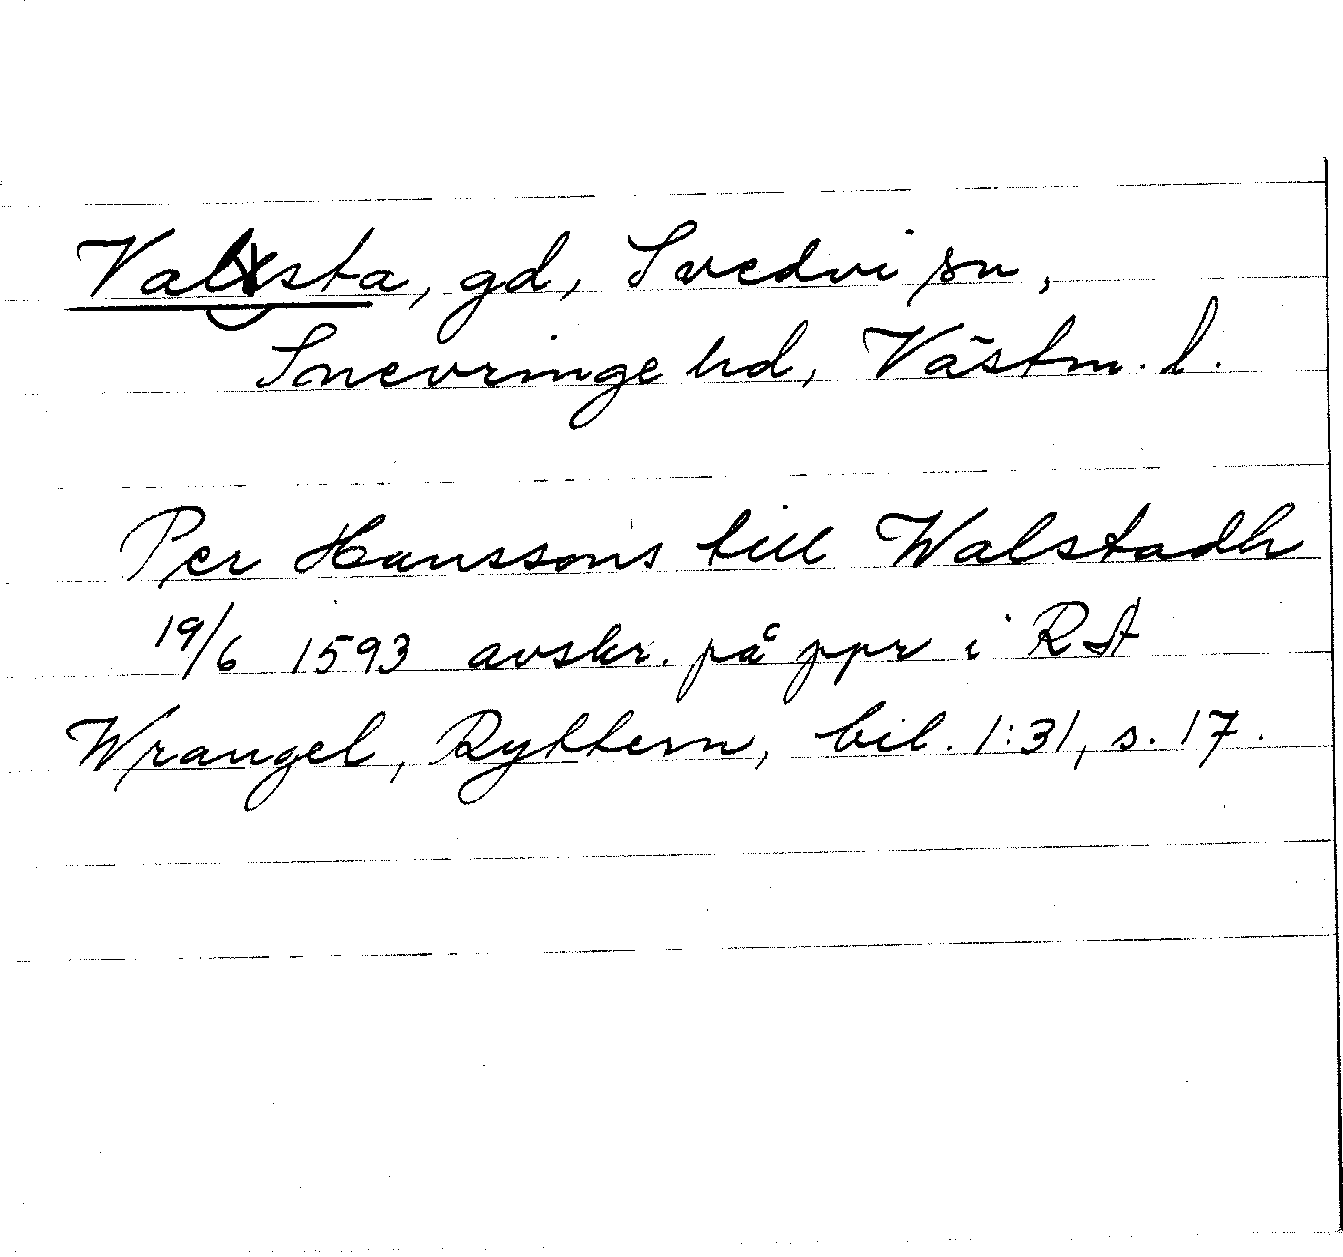 Valsta, gd, Svedvi sn,
Snevringe hd, Västm. l.
Per Hanssons till Walstadh
19/6 1593 avskr. på ppr i RA
Wrangel, Ryttern, bil. 1:31, s. 17.